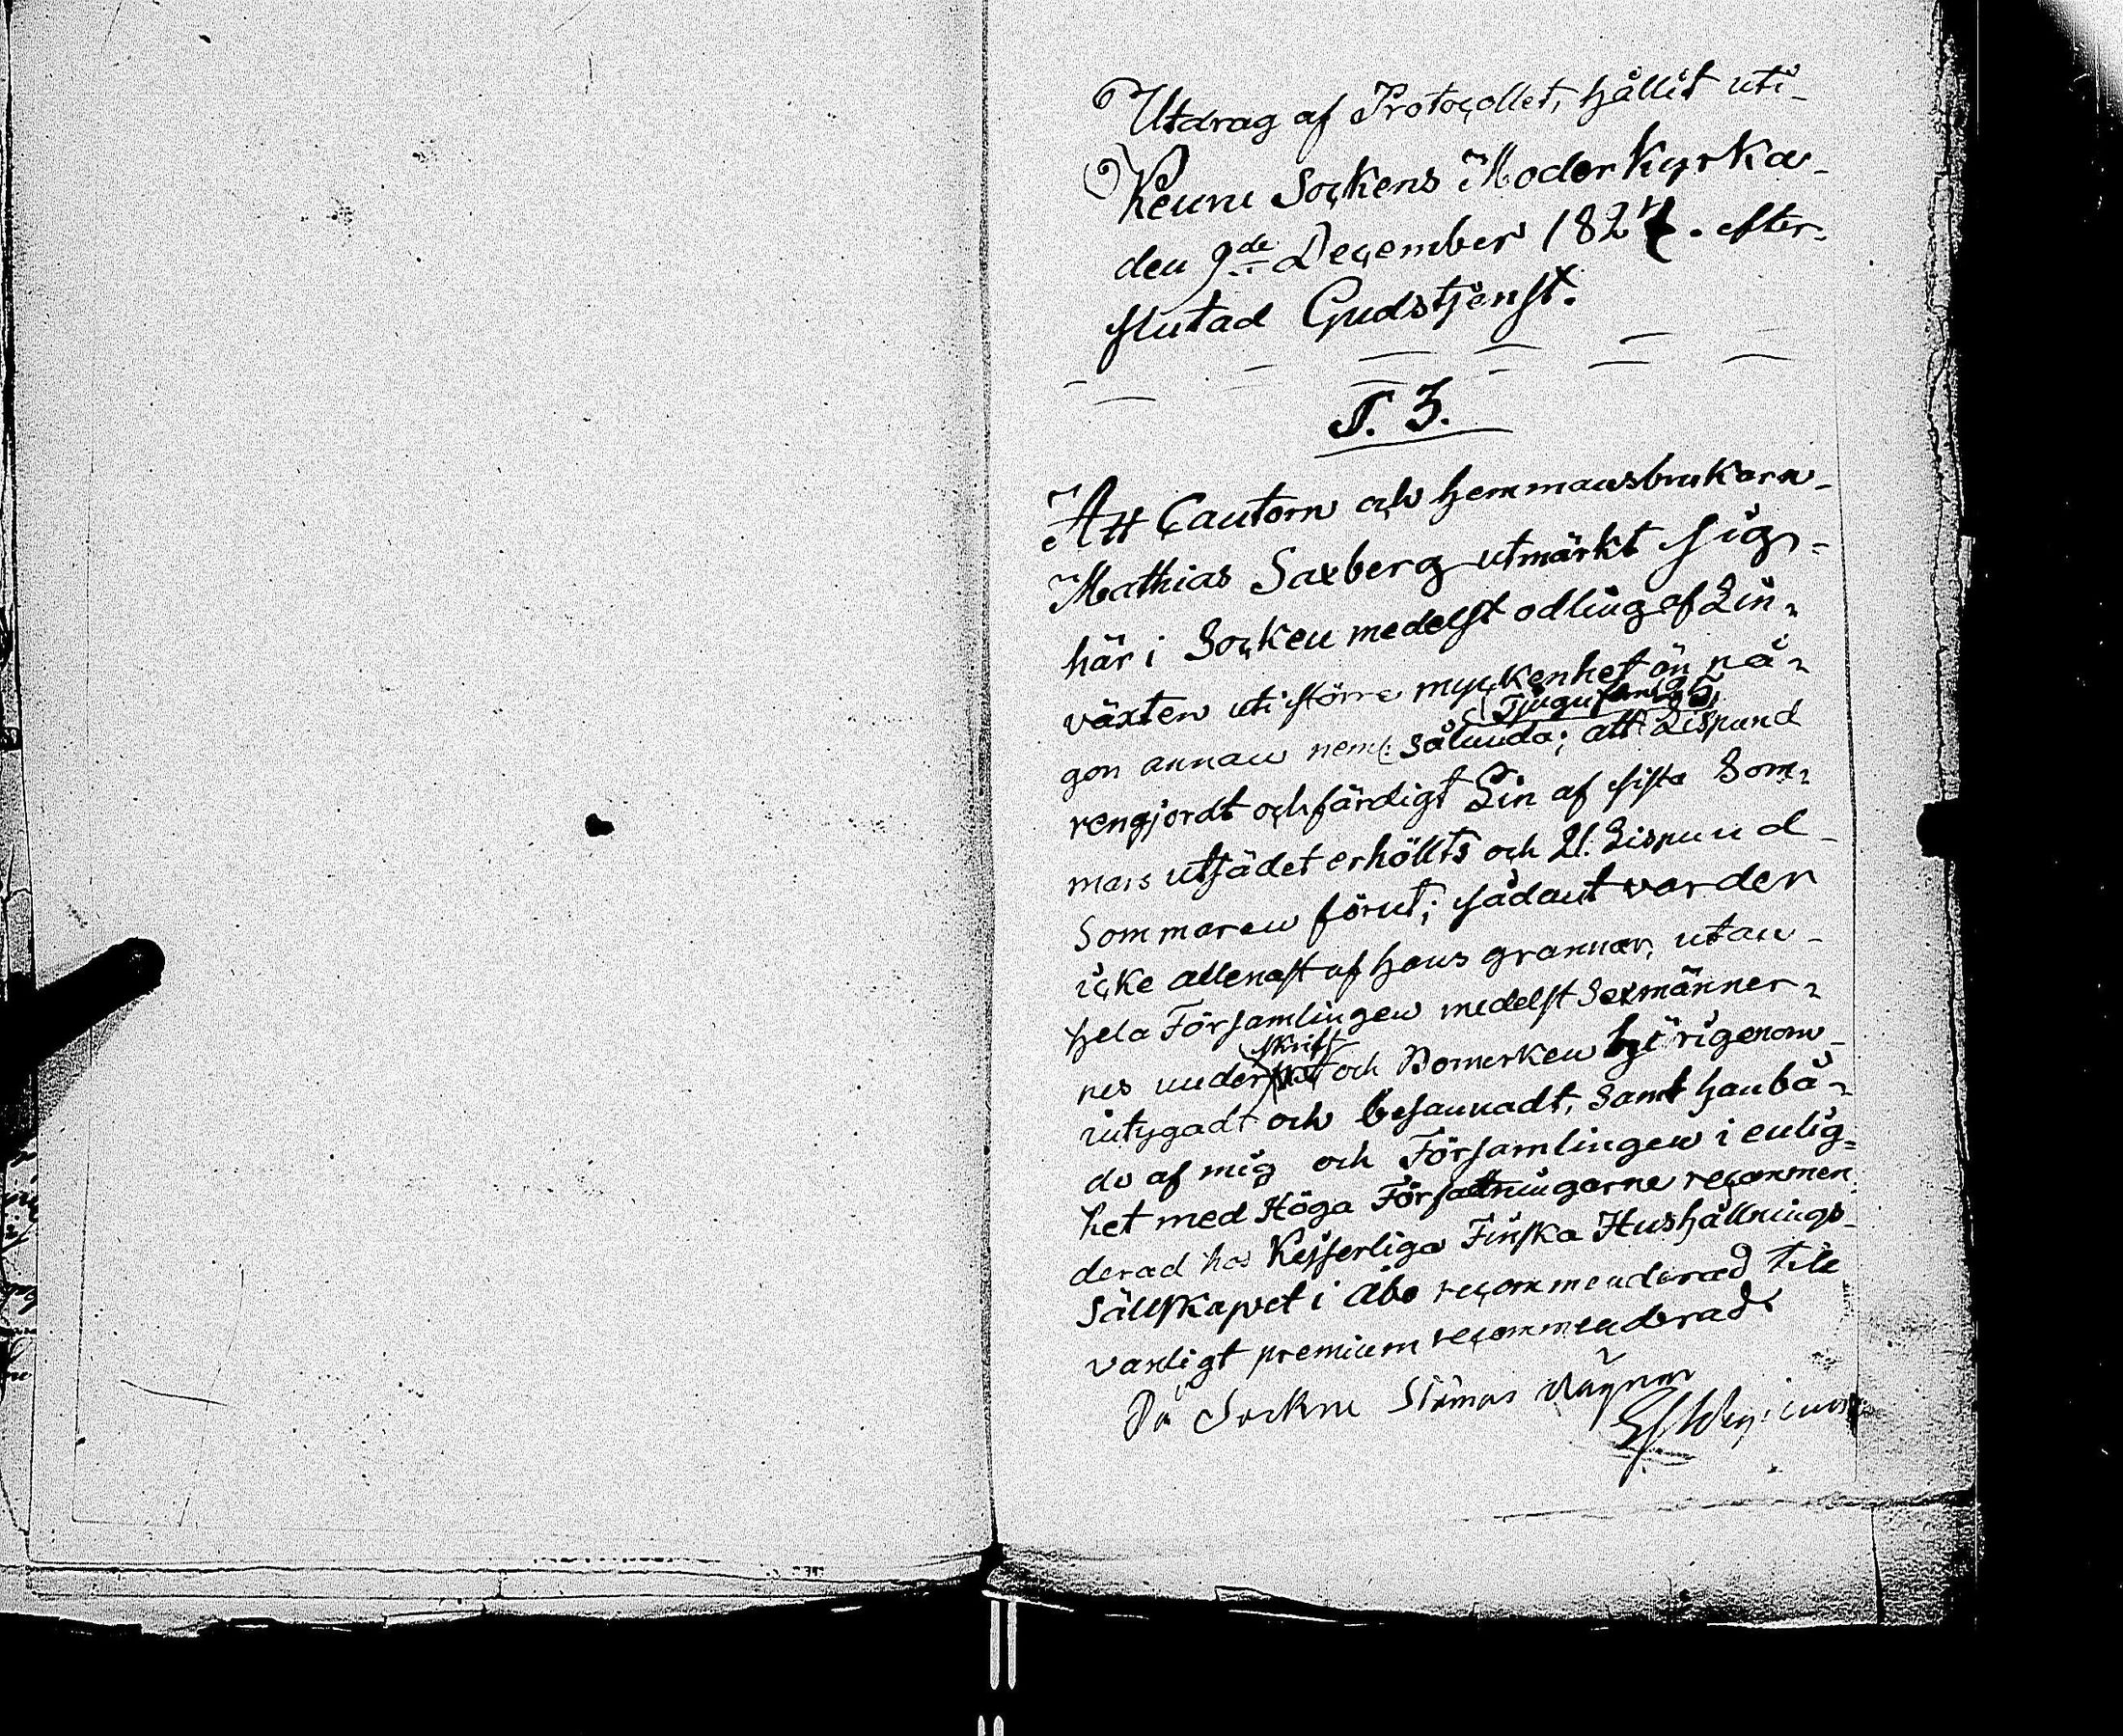 Utdrag af Protocollet, hållit uti
Keuru Sockens Moderkyrka
den 9de December 1827. efter
slutad Gudstjenst.
§. 3.
Att Cantorn och hemmansbrukarn
Mathias Saxberg utmärkt sig
här i Socken medelst odling af Lin-
växten uti större myckenhet än nå-
gon annan neml. sålunda; att Tjugufem 25 Lispund
rengjordt och färdigt Lin af sista Som-
mars utsädet erhöllts och 21. Lispund
Sommaren förut; sådant varder
icke allenast af hans grannar, utan
hela Församlingen medelst Sexmänner-
nes underskrift och Bomerken härigenom
intygadt och besannadt, samt han bå-
de af mig och Församlingen i enlig-
het med Höga Författningarne recommen-
derad hos Kejserliga Finska Hushållnings
Sällskapet i Åbo recommenderad till
vanligt premium recommenderad.
På Sockne Stämmas vägnar